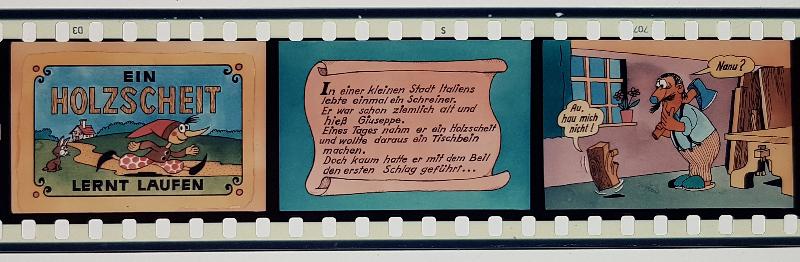 03
S
707
EIN
HOLZSCHEIT
LERNT LAUFEN
In einer kleinen Stadt Italiens
lebte einmal ein Schreiner.
Er war schon ziemlich alt und
hieß Giuseppe.
Eines Tages nahm er ein Holzscheit
und wollte daraus ein Tischbein
machen.
Doch kaum hatte er mit dem Beil
den ersten Schlag geführt...
Nanu?
Au,
hau mich
nicht!